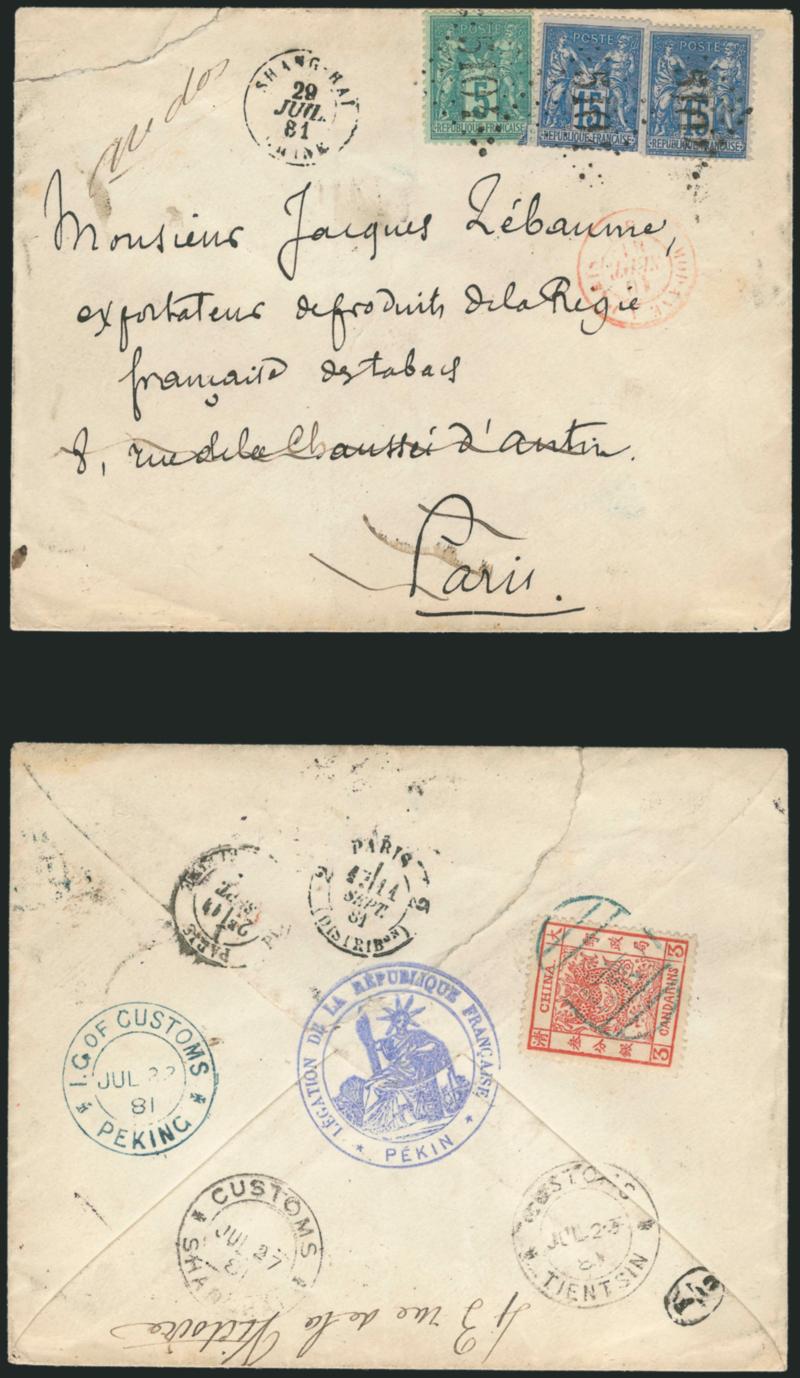 au dos
SHANG-HAI
29
JUIL.
81
CHINE
POSTE
5
RÉPUBLIQUE FRANÇAISE
POSTE
15
RÉPUBLIQUE FRANÇAISE
POSTE
15
RÉPUBLIQUE FRANÇAISE
Monsieur Jacques Lébaume,
exportateur de produits de la Régie
française des tabacs
8, rue de la Chaussée d'Antin.
Paris.
PARIS
SEPT.
PARIS
SEPT.
81
(DISTRIBon)
大
局
CHINA
3
CANDARINS
3
清
銀分叁
I.G. OF CUSTOMS
JUL 22
81
PEKING
LÉGATION DE LA RÉPUBLIQUE FRANÇAISE
PÉKIN
CUSTOMS
JUL 27
81
CUSTOMS
JUL 23
81
TIENTSIN
43 rue de la Victoire